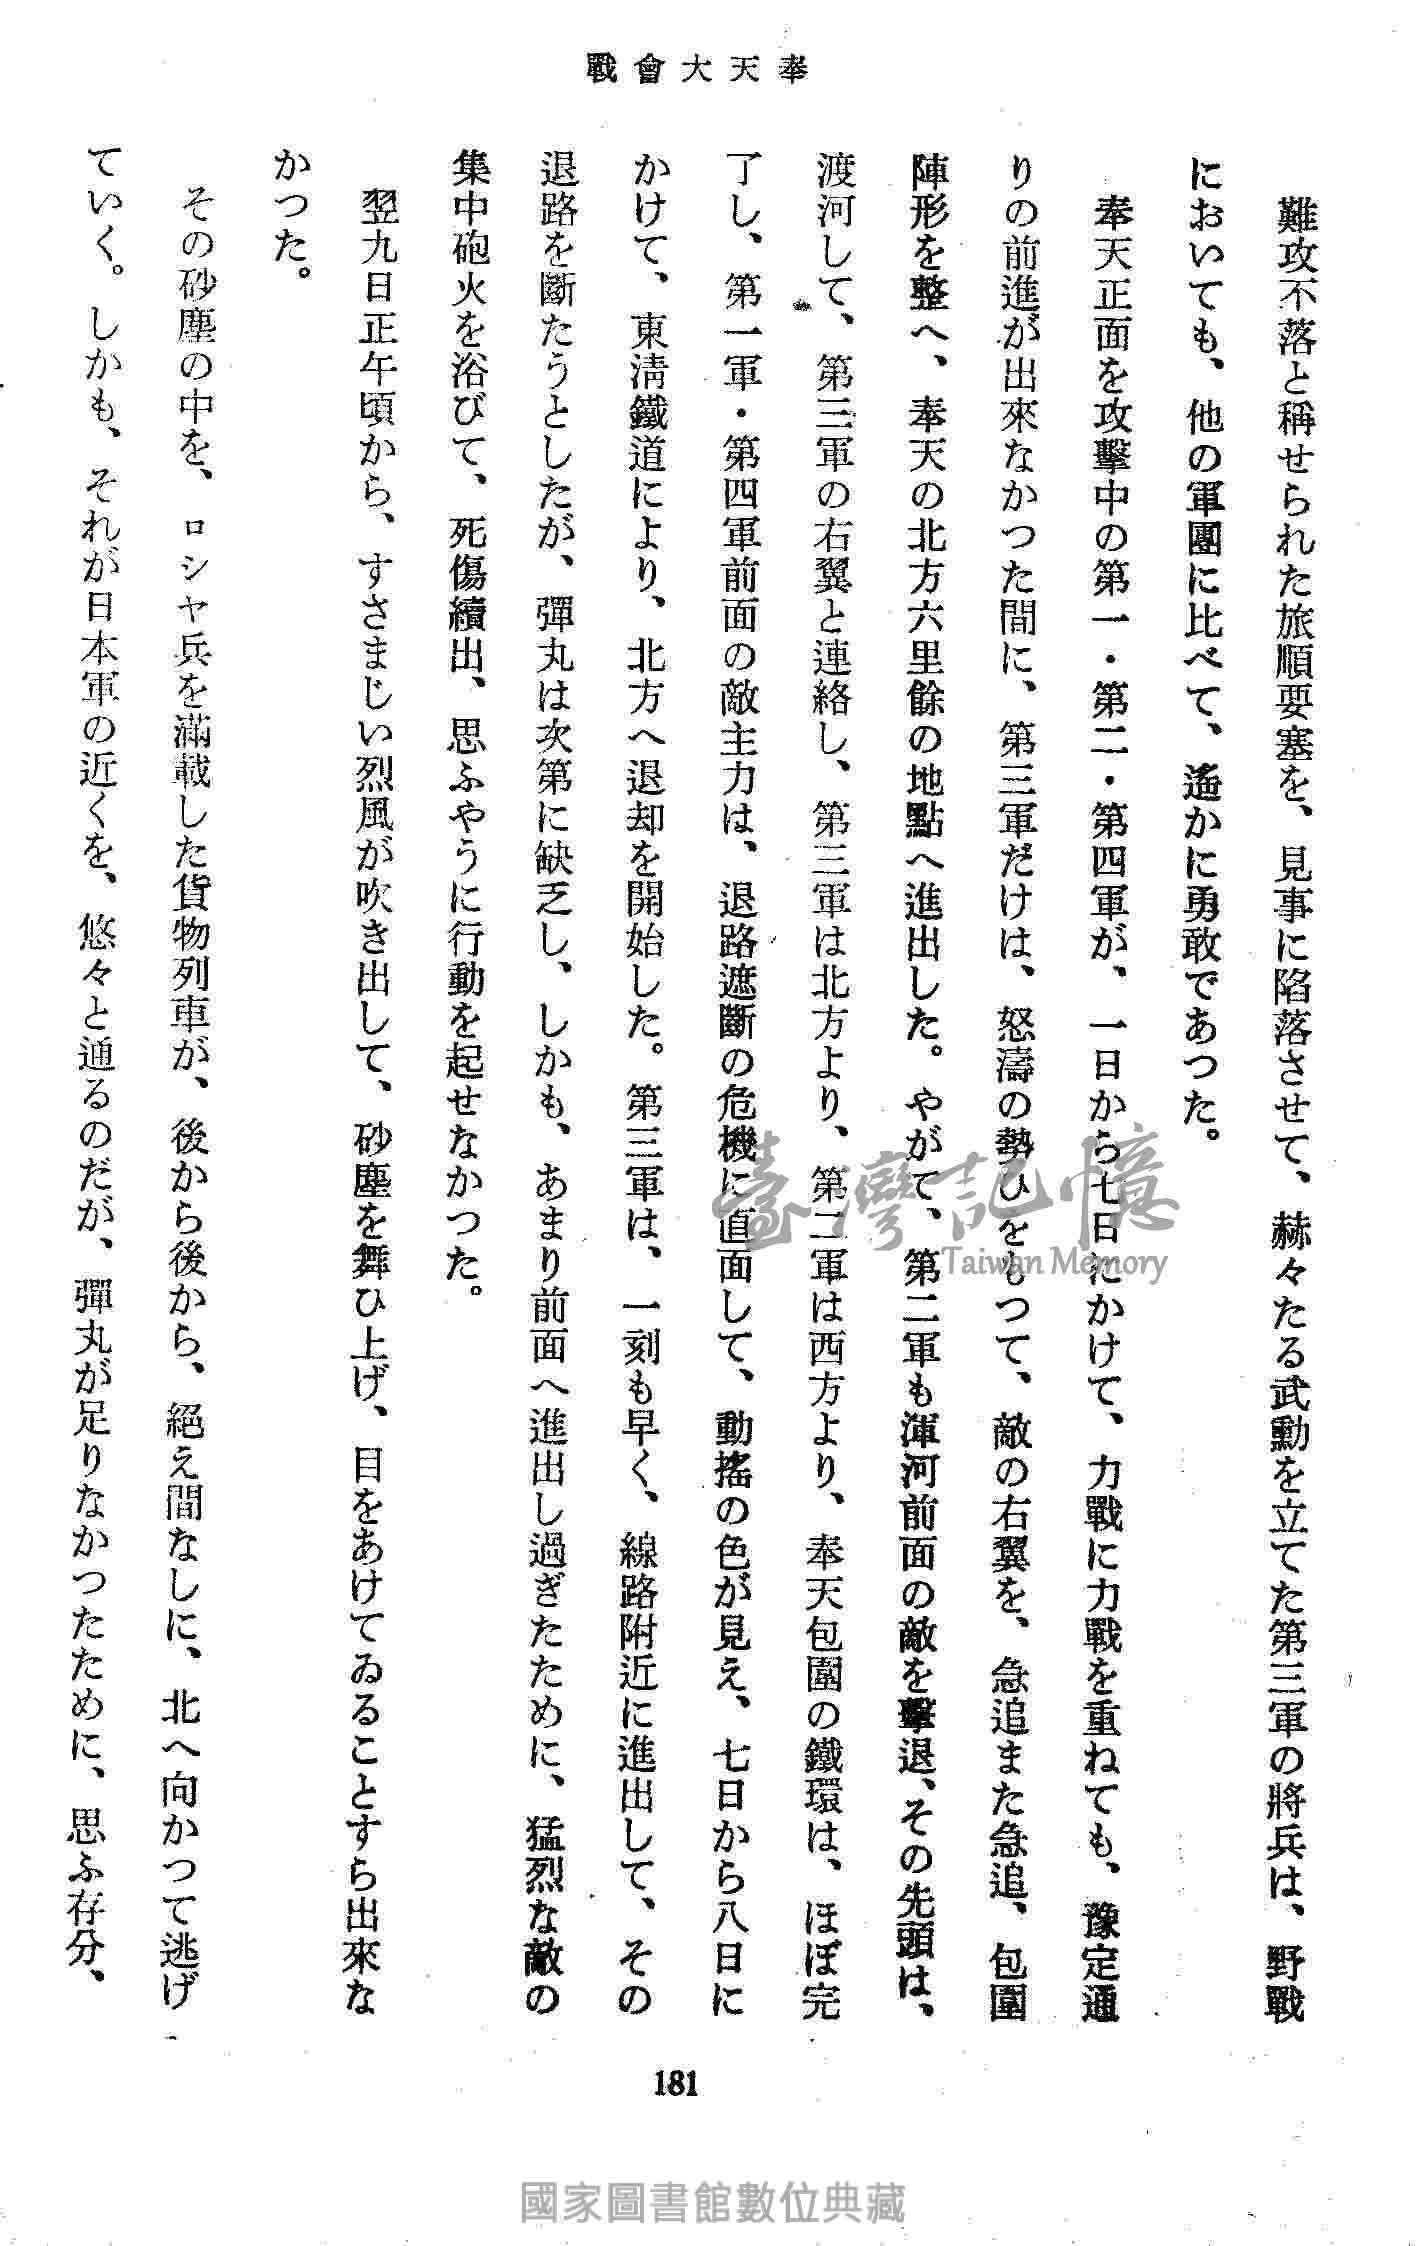 戰會大天奉
難攻不落と稱せられた旅順要塞を、見事に陷落させて、赫々たる武勳を立てた第三軍の將兵は、野戰
においても、他の軍團に比べて、遙かに勇敢であつた。
奉天正面を攻擊中の第一・第二・第四軍が、一日から七日にかけて、力戰に力戰を重ねても、豫定通
りの前進が出來なかつた間に、第三軍だけは、怒濤の勢ひをもつて、敵の右翼を、急追また急追、包圍
陣形を整へ、奉天の北方六里餘の地點へ進出した。やがて、第二軍も渾河前面の敵を擊退、その先頭は、
渡河して、第三軍の右翼と連絡し、第三軍は北方より、第二軍は西方より、奉天包圍の鐵環は、ほぼ完
了し、第一軍・第四軍前面の敵主力は、退路遮斷の危機に直面して、動搖の色が見え、七日から八日に
かけて、東淸鐵道により、北方へ退却を開始した。第三軍は、一刻も早く、線路附近に進出して、その
退路を斷たうとしたが、彈丸は次第に缺乏し、しかも、あまり前面へ進出し過ぎたために、猛烈な敵の
集中砲火を浴びて、死傷續出、思ふやうに行動を起せなかつた。
翌九日正午頃から、すさまじい烈風が吹き出して、砂塵を舞ひ上げ、目をあけてゐることすら出來な
かつた。
その砂塵の中を、ロシヤ兵を滿載した貨物列車が、後から後から、絕え間なしに、北へ向かつて逃げ
ていく。しかも、それが日本軍の近くを、悠々と通るのだが、彈丸が足りなかつたために、思ふ存分、
181
臺灣記憶
Taiwan Memory
國家圖書館數位典藏